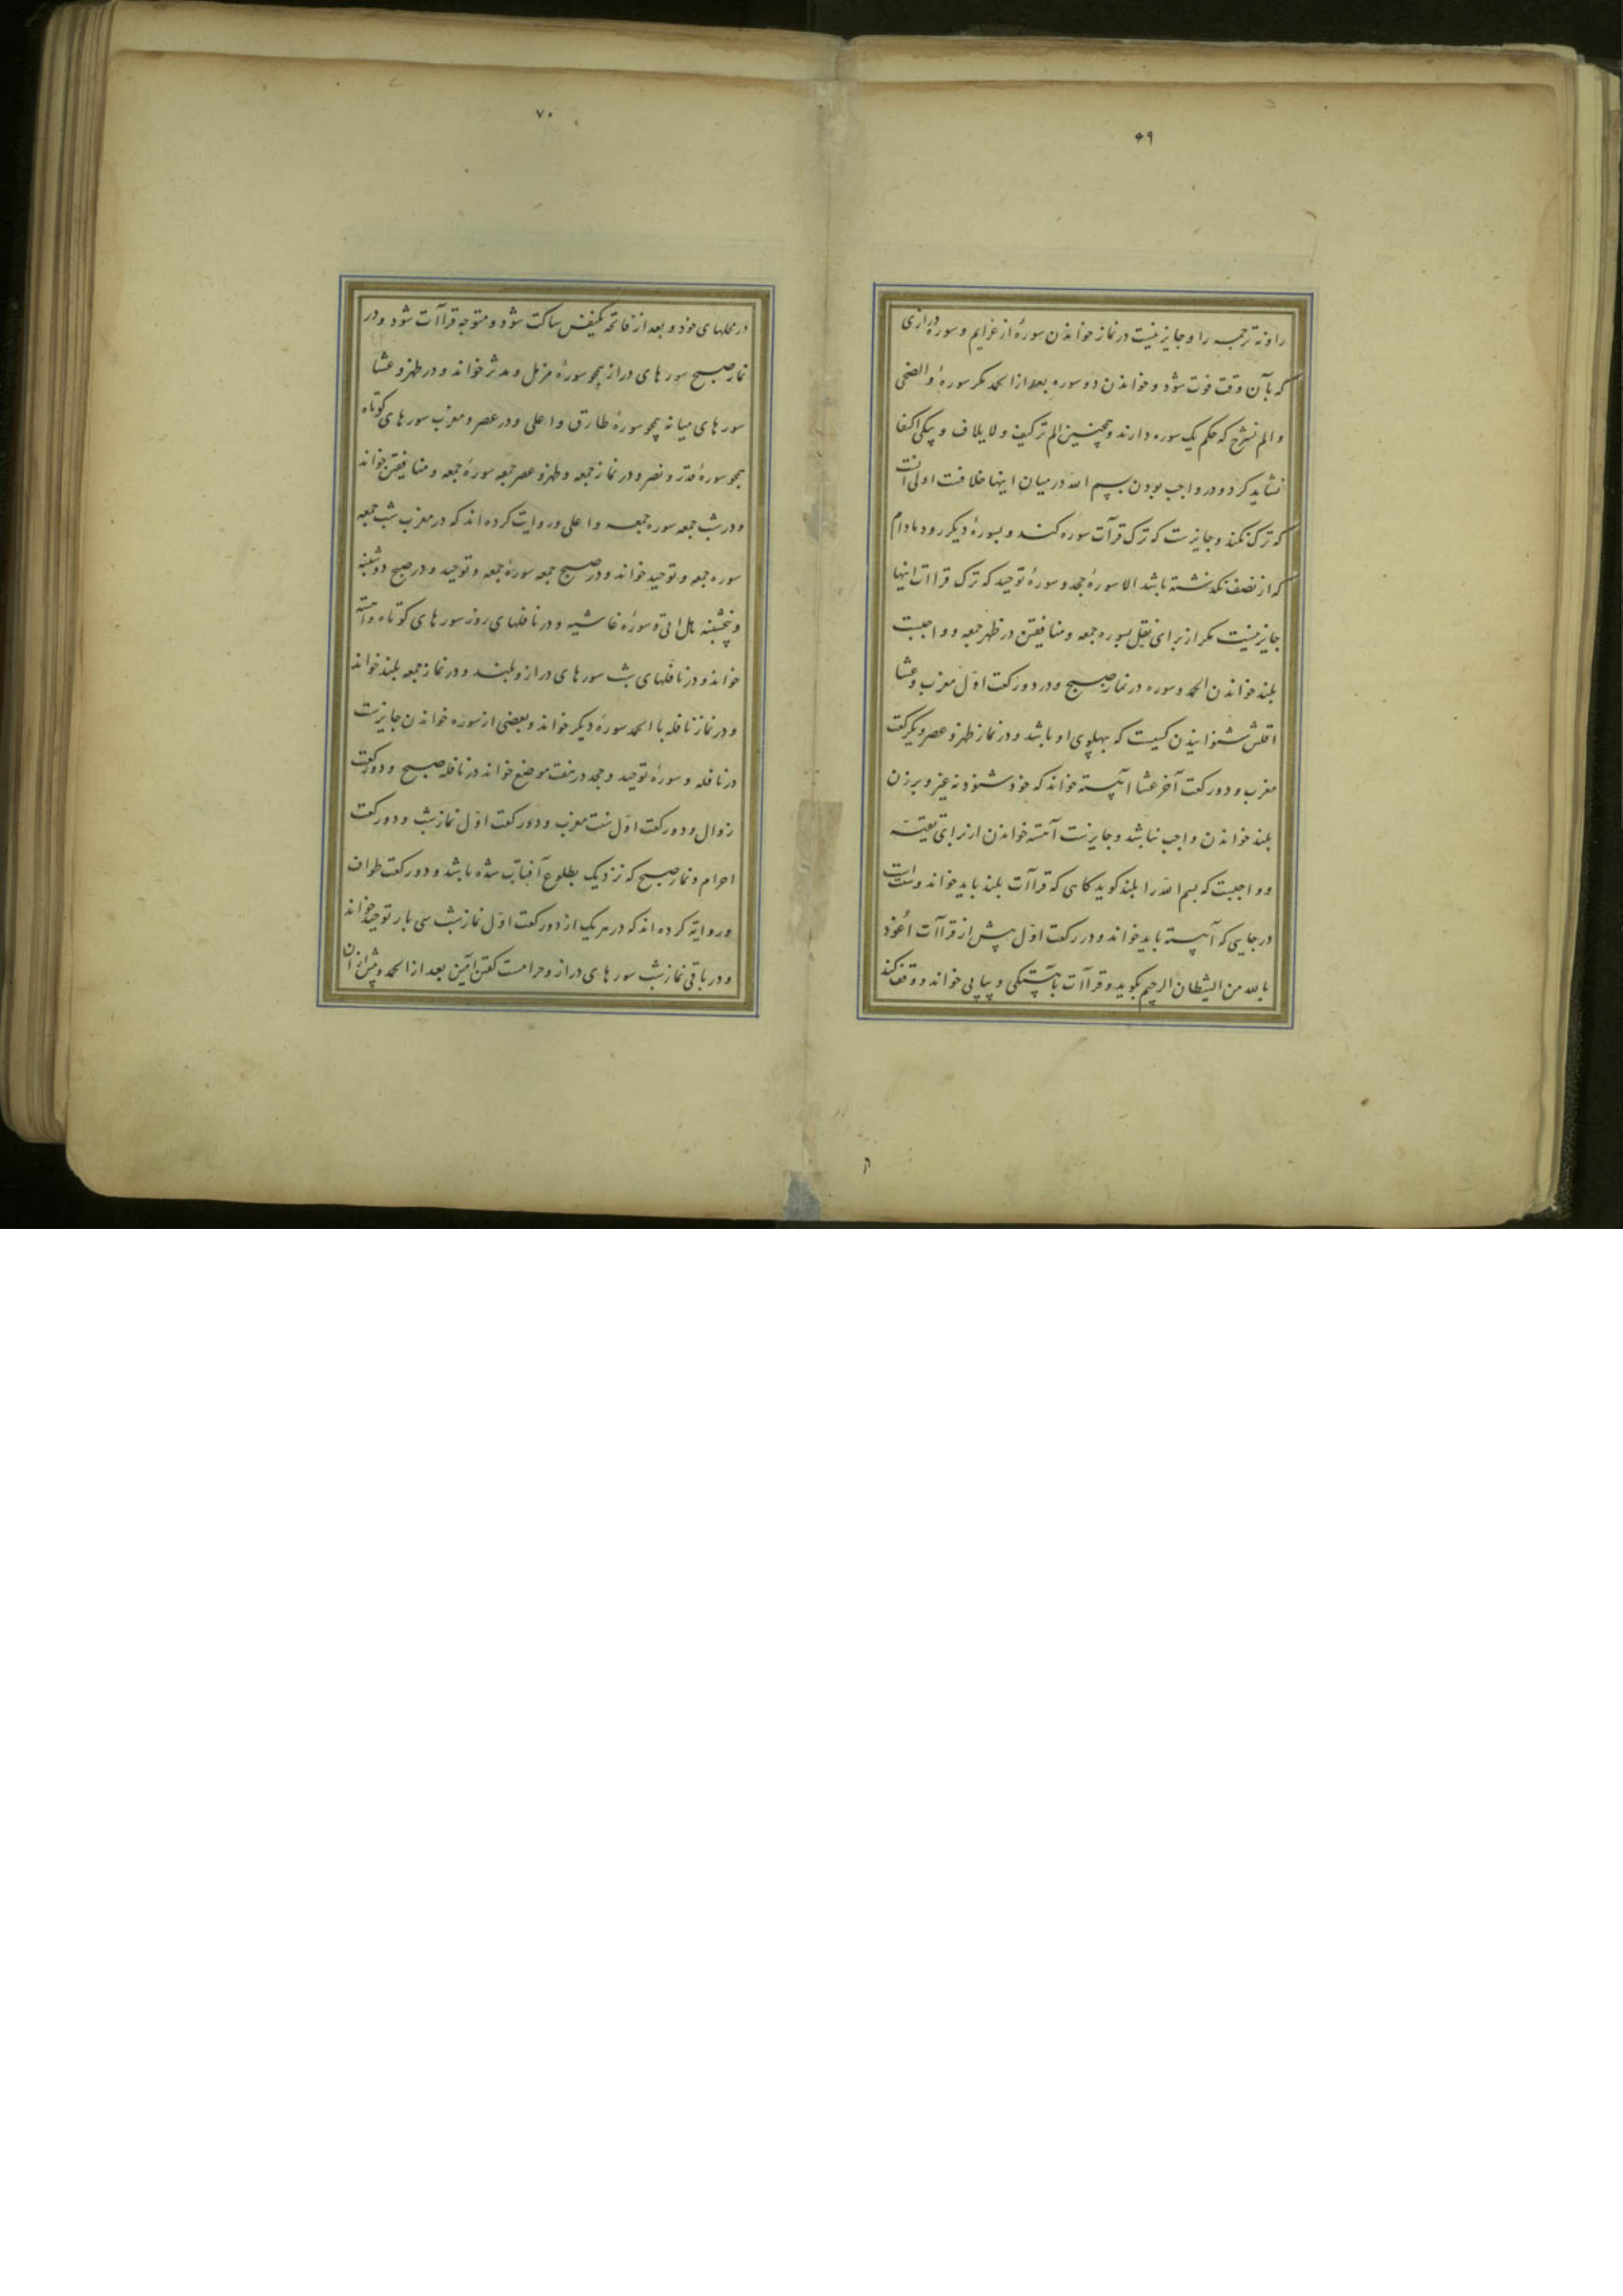 ۶۹
را و نه ترجمه را و جایز نیست در نماز خواندن سورهٔ از عزایم و سورهٔ درازی
که بآن وقت فوت شود و خواندن دو سوره بعد از الحمد مکر سورهٔ والضحی
و الم نشرح که حکم یک سوره دارند و همچنین الم ترکیف و لایلاف و بیکی اکتفا
نشاید کرد و در واجب بودن بسم الله در میان اینها خلافت اولی آنست
که ترک نکند و جایزست که ترک قرآت سوره کند و بسورهٔ دیکر رود مادام
که از نصف نکذشته باشد الا سورهٔ جحد و سورهٔ توحید که ترک قراات اینها
جایز نیست مکر از برای نقل بسوره جمعه و منافقین در ظهر جمعه و واجبست
بلند خواندن الحمد و سوره در نماز صبح و در دو رکعت اول مغرب و عشا
اقلش شنوانیدن کسیست که بپهلوی او باشد و در نماز ظهر و عصر و یکرکعت
مغرب و دو رکعت آخر عشا آهسته خواند که خود شنود نه غیر و بر زن
بلند خواندن واجب نباشد و جایزست آهسته خواندن از برای تقیه
و واجبست که بسم الله را بلند کوید کاهی که قراآت بلند باید خواند و سنتست
در جایی که آهسته باید خواند و در رکعت اول پیش از قراآت اعوذ
بالله من الشیطان الرجیم بکوید و قراآت بآهستکی و پیاپی خواند و وقف کند
۷۰
در محلهای خود و بعد از فاتحه یکنفس ساکت شود و متوجه قراآت شود و در
نماز صبح سورهای دراز همچو سورهٔ مزمل و مدثر خواند و در ظهر و عشا
سورهای میانه همچو سورهٔ طارق و اعلی و در عصر و مغرب سورهای کوتاه
همچو سورهٔ قدر و نصر و در نماز جمعه و ظهر و عصر جمعه سورهٔ جمعه و منافقین خواند
و در شب جمعه سوره جمعه و اعلی و روایت کرده اند که در مغرب شب جمعه
سوره جمعه و توحید خواند و در صبح جمعه سورهٔ جمعه و توحید و در صبح دوشنبه
و پنجشنبه هل اتی و سورهٔ غاشیه و در نافلهای روز سورهای کوتاه و آهسته
خواند و در نافلهای شب سورهای دراز و بلند و در نماز جمعه بلند خواند
و در نماز نافله با الحمد سورهٔ دیکر خواند و بعضی از سوره خواندن جایزست
در نافله و سورهٔ توحید و جحد در هفت موضع خواند در نافله صبح و دو رکعت
زوال و دو رکعت اول سنت مغرب و دو رکعت اول نماز شب و دو رکعت
احرام و نماز صبح که نزدیک بطلوع آفتاب شده باشد و دو رکعت طواف
و روایه کرده اند که در هر یک از دو رکعت اول نماز شب سی بار توحید خواند
و در باقی نماز شب سورهای دراز و حرامست کفتن آمین بعد از الحمد و پیش از آن